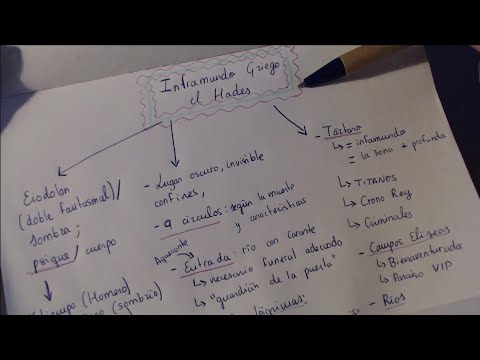 Inframundo Griego
el Hades
Eiodolon
(doble fantasmal)/
sombra;
psique/ cuerpo
(Homero)
(sombrío)
- Lugar oscuro, invisible
confines,
- 9 círculos: según la muerte
y características
Aqueronte
- Entrada: río con Caronte
↳ necesario funeral adecuado
↳ "guardián de la puerta"
lágrimas:
- Tártaro
↳ = inframundo
= la zona + profunda
↳ TITANES
↳ Crono Rey
↳ Criminales
- Campos Elíseos
↳ Bienaventurada
↳ Paraíso VIP
- Ríos